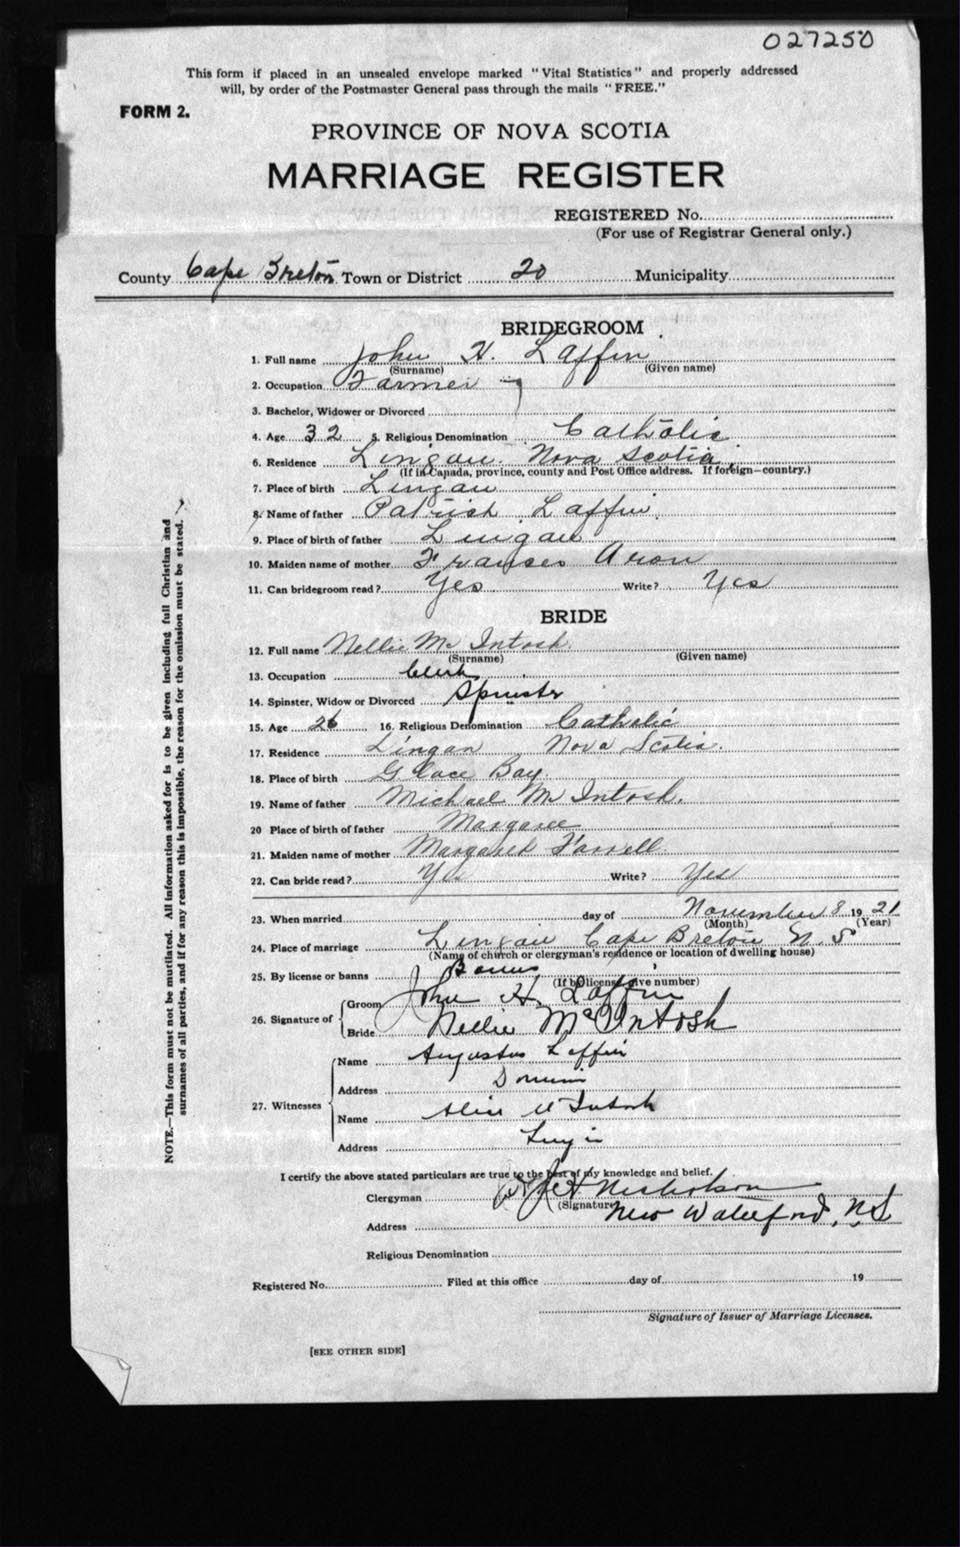 027250
This form if placed in an unsealed envelope marked "Vital Statistics" and properly addressed
will, by order of the Postmaster General pass through the mails "FREE."
FORM 2.
PROVINCE OF NOVA SCOTIA
MARRIAGE REGISTER
REGISTERED No.
(For use of Registrar General only.)
County Cape Breton Town or District 20 Municipality
BRIDEGROOM
1. Full name John H. Laffin
(Surname) (Given name)
2. Occupation Farmer
3. Bachelor, Widower or Divorced
4. Age 32 5. Religious Denomination Catholic
6. Residence Lingan. Nova Scotia
(If in Canada, province, county and Post Office address. If foreign—country.)
7. Place of birth Lingan
8. Name of father Patrick Laffin
9. Place of birth of father Lingan
10. Maiden name of mother Frances
11. Can bridegroom read? Yes Write? Yes
BRIDE
12. Full name Nellie Mc Intosh
(Surname) (Given name)
13. Occupation Clerk
14. Spinster, Widow or Divorced Spinster
15. Age 26 16. Religious Denomination Catholic
17. Residence Lingan Nova Scotia.
18. Place of birth Glace Bay.
19. Name of father Michael Mc Intosh.
20 Place of birth of father Margaree
21. Maiden name of mother Margaret Farrell
22. Can bride read? Yes Write? Yes
23. When married day of November 8 1921
(Month) (Year)
24. Place of marriage Lingan Cape Breton N. S
(Name of church or clergyman's residence or location of dwelling house)
25. By license or banns Banns
(If by license, give number)
26. Signature of
Groom John H. Laffin
Bride Nellie McIntosh
27. Witnesses
Name Augustus Laffin
Address
Name Alice McIntosh
Address
I certify the above stated particulars are true to the best of my knowledge and belief.
Clergyman Nicholson
(Signature)
Address New Waterford, N.S
Religious Denomination
Registered No. Filed at this office day of 19
Signature of Issuer of Marriage Licenses.
[SEE OTHER SIDE]
NOTE.—This form must not be mutilated. All information asked for is to be given including full Christian and
surnames of all parties, and if for any reason this is impossible, the reason for the omission must be stated.